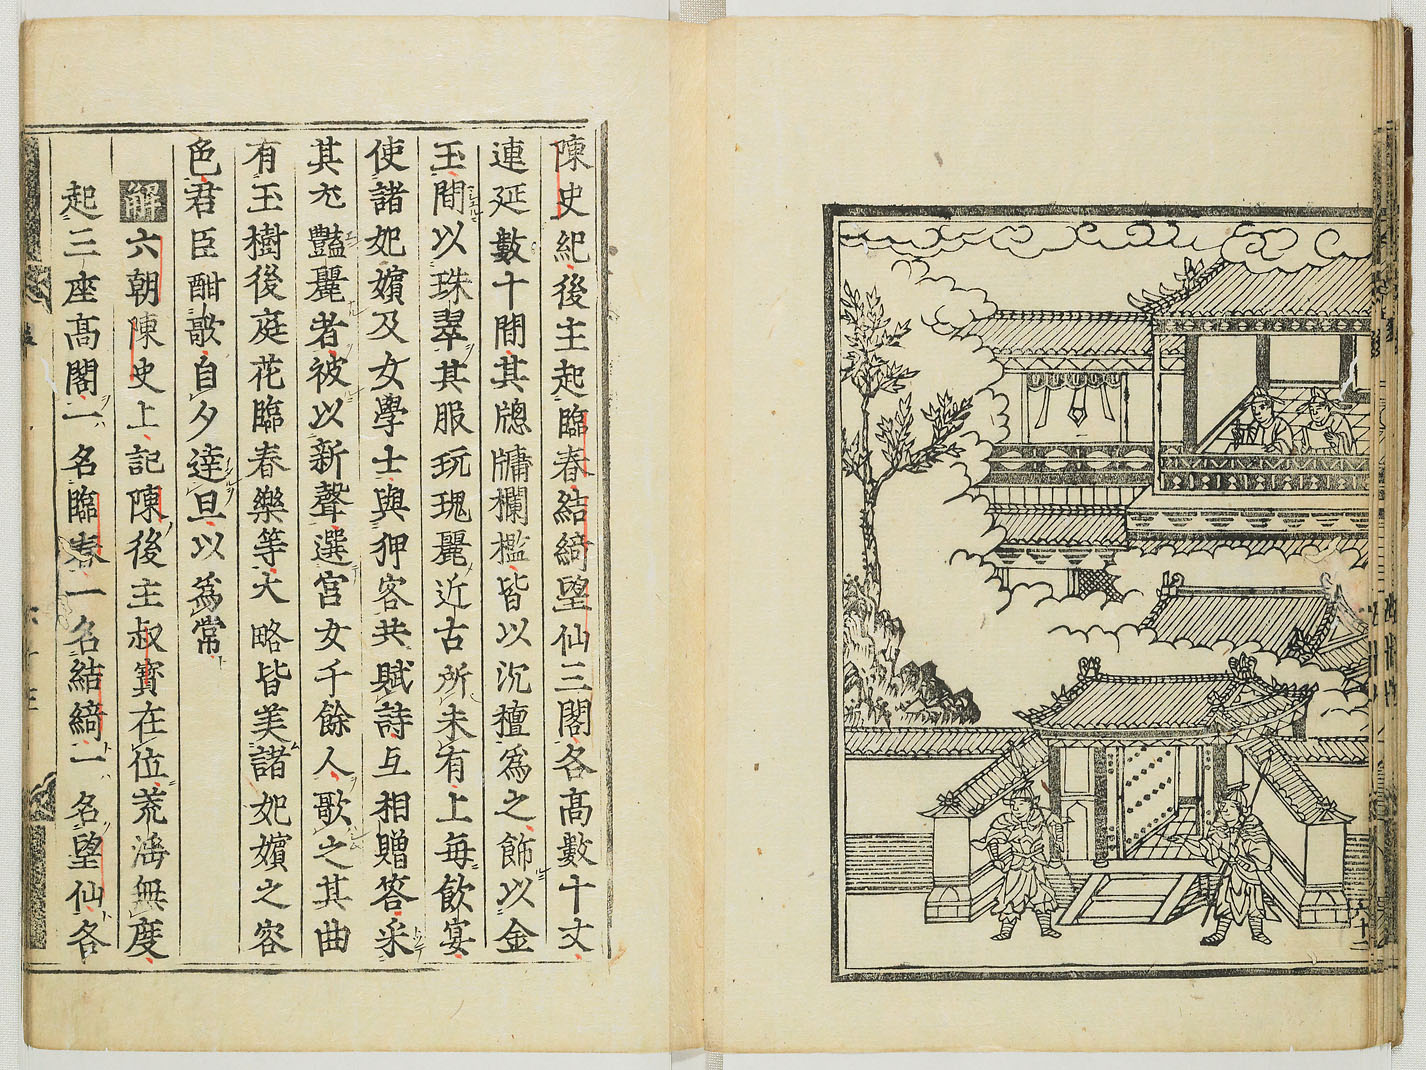 陳史紀後主起臨春結綺望仙三閣各高數十丈
連延數十間其牕牗欄檻皆以沉檀爲之飾以金
玉間以珠翠其服玩瑰麗近古所未有上每飲宴
使諸妃嬪及女學士與狎客共賦詩互相贈答采
其尤豔麗者被以新聲選宮女千餘人歌之其曲
有玉樹後庭花臨春樂等大略皆美諸妃嬪之容
色君臣酣歌自夕達旦以爲常
解六朝陳史上記陳後主叔寳在位荒滛無度
起三座高閣一名臨春一名結綺一名望仙各